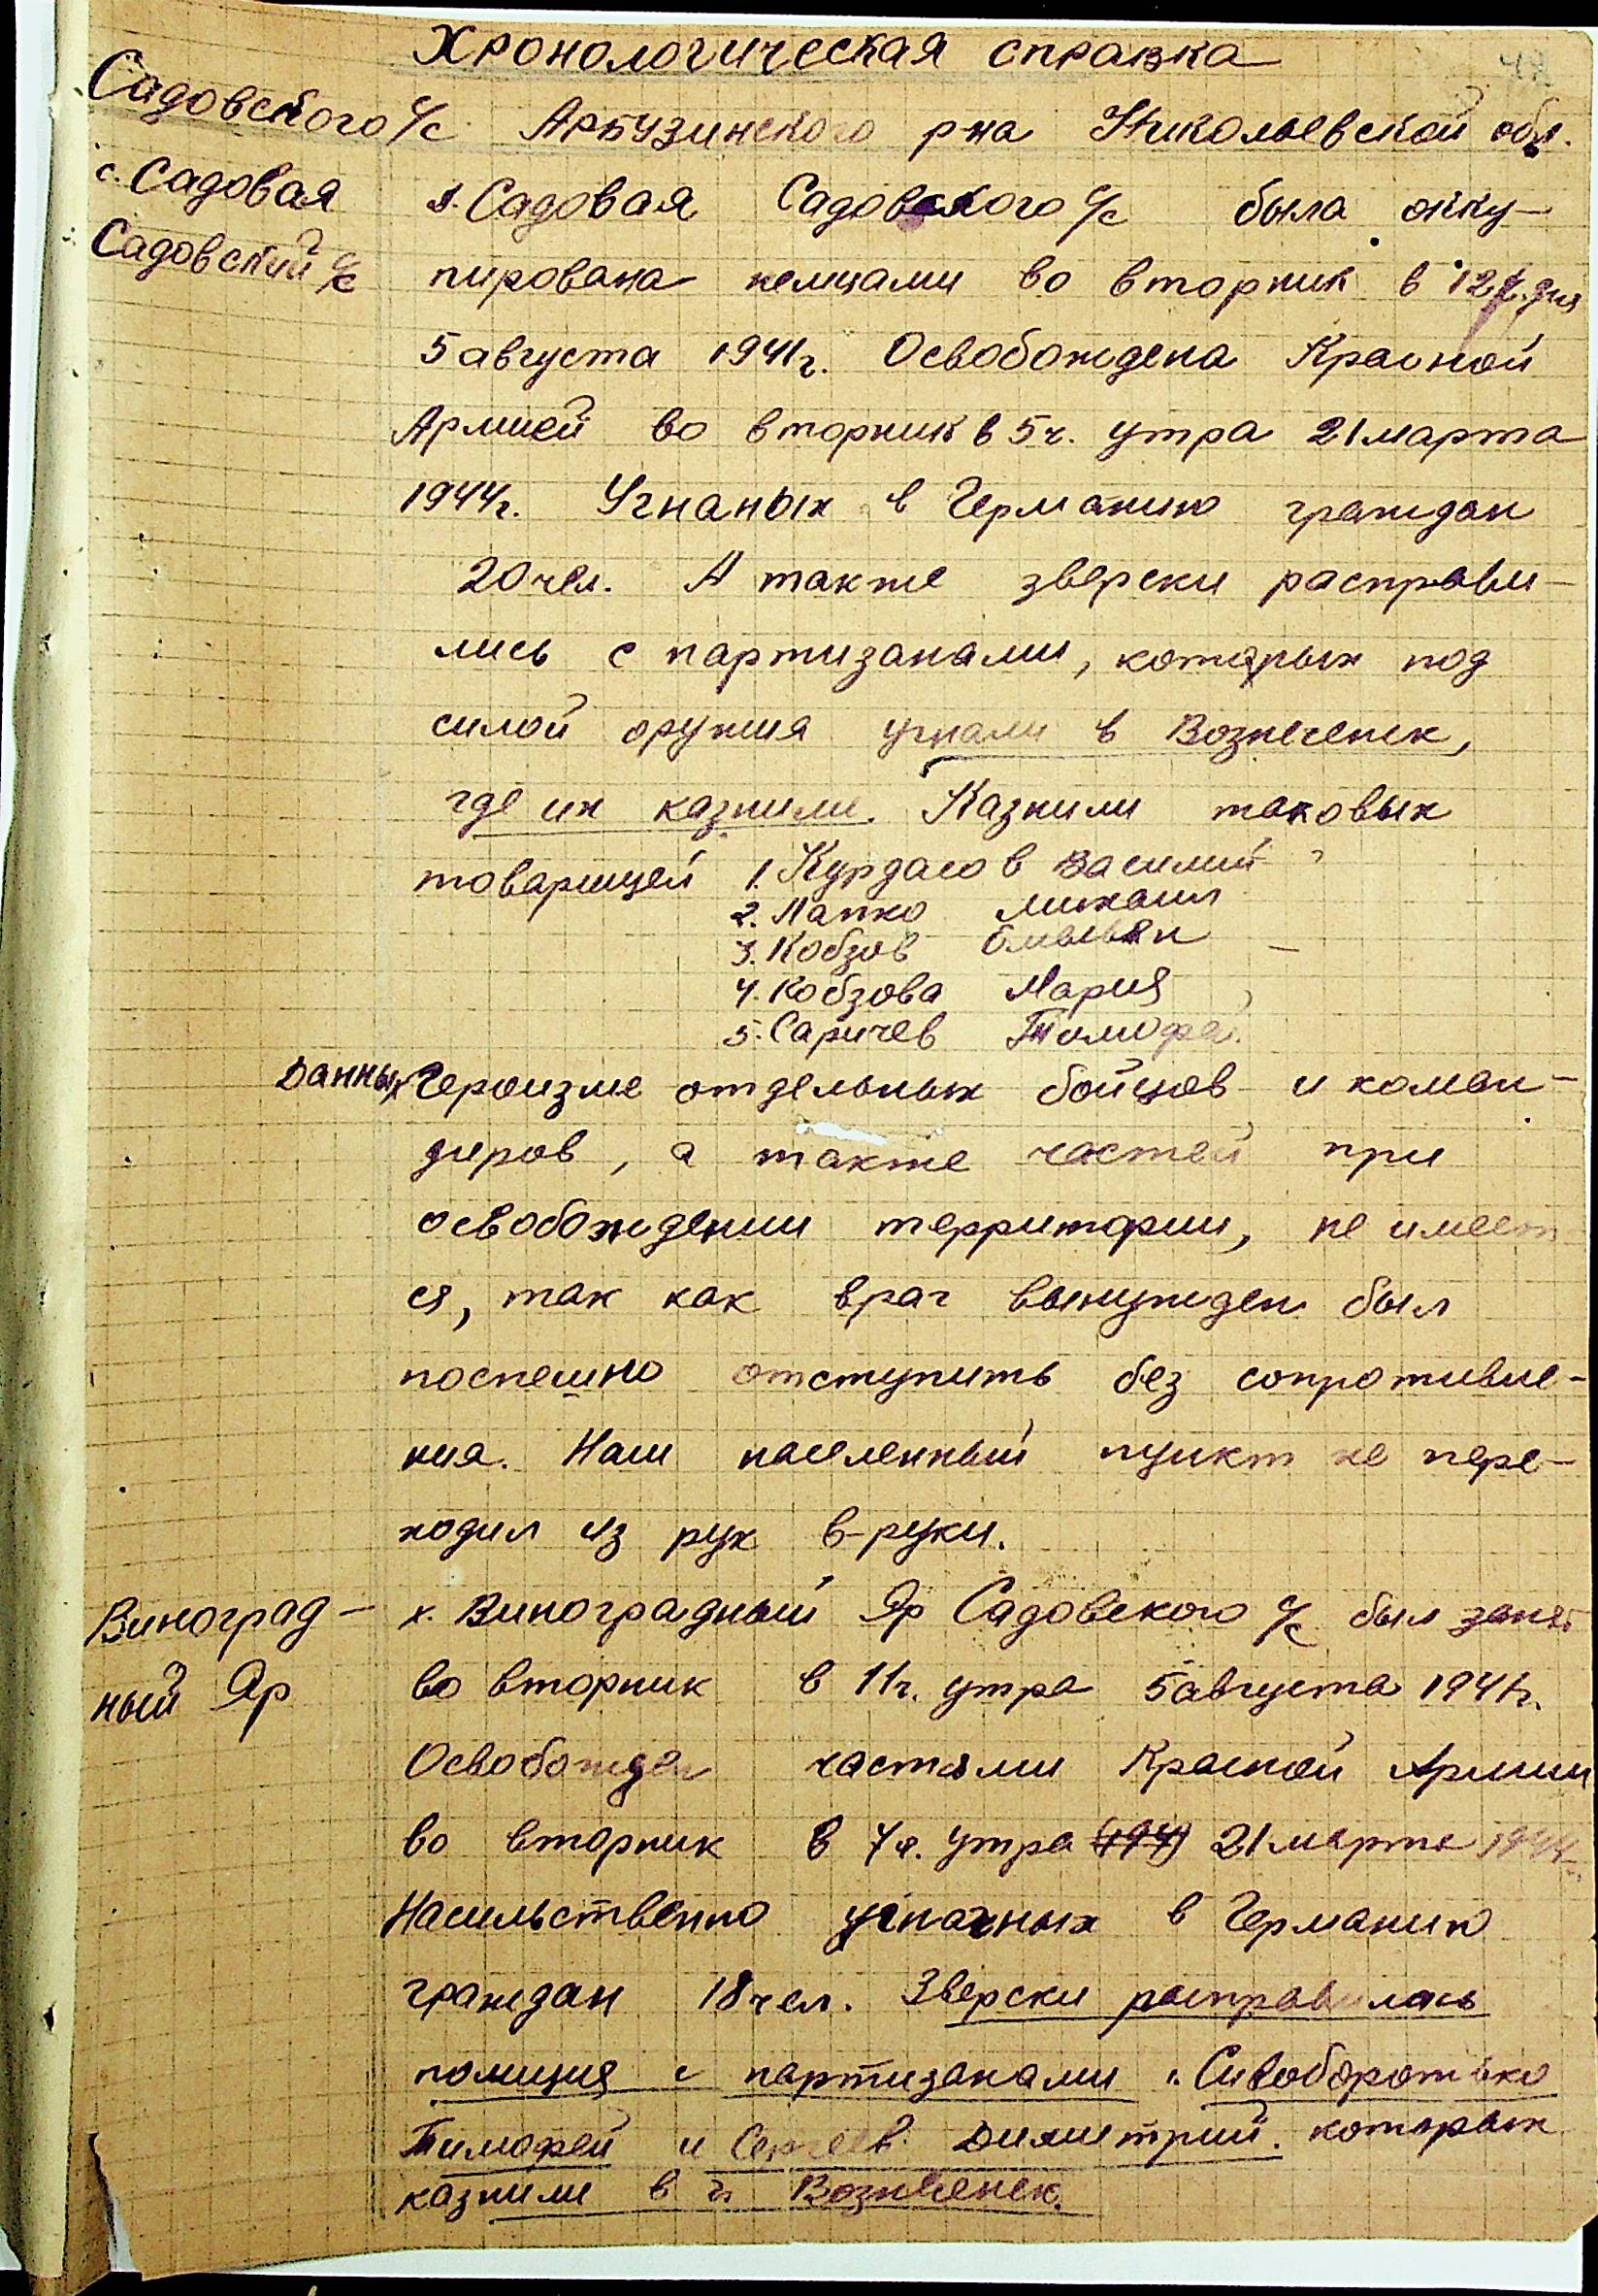 Хронологическая справка
Садовского с/с Арбузинского р-на Николаевской обл.
с. Садовая
Садовский с/с
с. Садовая Садовского с/с была окку-
пирована немцами во вторник в 12 ч. дня
5 августа 1941 г. Освобождена Красной
Армией во вторник в 5 ч. утра 21 марта
1944 г. Угнаных в Германию граждан
20 чел. А также зверски расправи-
лись с партизанами, которых под
силой оружия угнали в Вознесенск,
где их казнили. Казнили таковых
товарищей 1. Курдасов Василий
2. Лапко Михаил
3. Кобзов Омельян
4. Кобзова Мария
5. Саричев Тимофей.
Данных Героизме отдельных бойцов и коман-
диров, а также частей при
освобождении территории, не имеет-
ся, так как враг вынужден был
поспешно отступить без сопротивле-
ния. Наш населенный пункт не пере-
ходил из рук в-руки.
Виноград-
ный Яр
х. Виноградный Яр Садовского с/с был занят
во вторник в 11 ч. утра 5 августа 1941 г.
Освобожден частями Красной Армии
во вторник в 7 ч. утра 21 марта 1944 г.
Насильственно угнанных в Германию
граждан 18 чел. Зверски расправилась
полиция с партизанами Сивоборотько
Тимофей и Сергеев Димитрий. которых
казнили в г. Вознесенск.